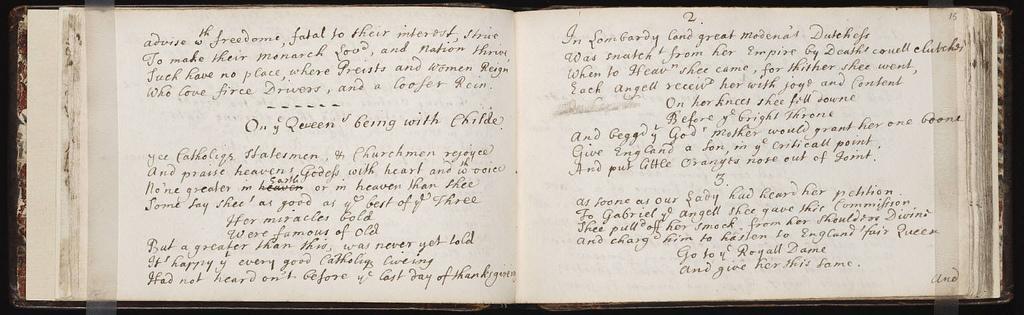 advise wth freedome, fatal to their interest, strive
To make their Monarch Lov'd, and Nation thrive,
Such have no place, where Preists and Women Reign
Who Love firce Drivers, and a Looser Rein.
On ye Queen's being with Childe.
yee Catholigs Statesmen, & Churchmen rejoyce
And praise heavens Godess with heart and wth voice
No'ne greater in heaven Earth or in heaven than shee
Some say shee's as good as ye best of ye Three
Her miracles bold
Were famous of Old
But a greater than this, was never yet told
It's happy ye every good Catholig Eweing
Had not heard on't before ye last day of thanksgiven
2.
15
In Lombardy Land great Modena's Dutchess
Was snatch't from her Empire by Death's cruell clutches
When to Heav'n shee came, for thither shee went,
Each Angell receiv'd her with joye and Content
On her knees shee fell downe
Before ye bright throne
And begg'd ye God's Mother would grant her one boone
Give England a Son, in ye Criticall point,
And put little Oranges nose out of Joint.
3.
As soone as our Lady had heard her petition
To Gabriel ye Angell shee gave this Commission
Shee pull'd off her smock from her shoulders Divine
And charg'd him to hasten to England's fair Queen
Go to ye Royall Dame
And give her this same.
And